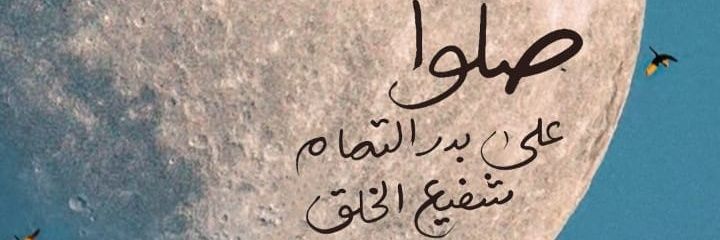 صلوا
على بدر التمام
شفيع الخلق